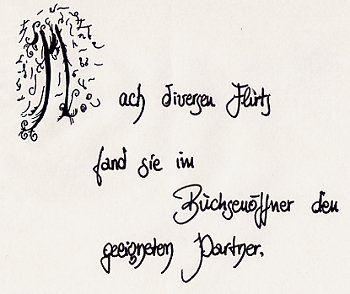 Nach diversen Flirts
fand sie im
Büchsenöffner den
geeigneten Partner.